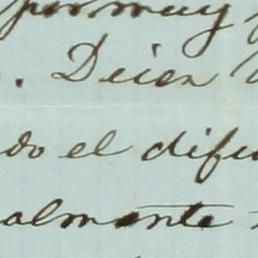 por muy
. Dicen
do el difu
almente